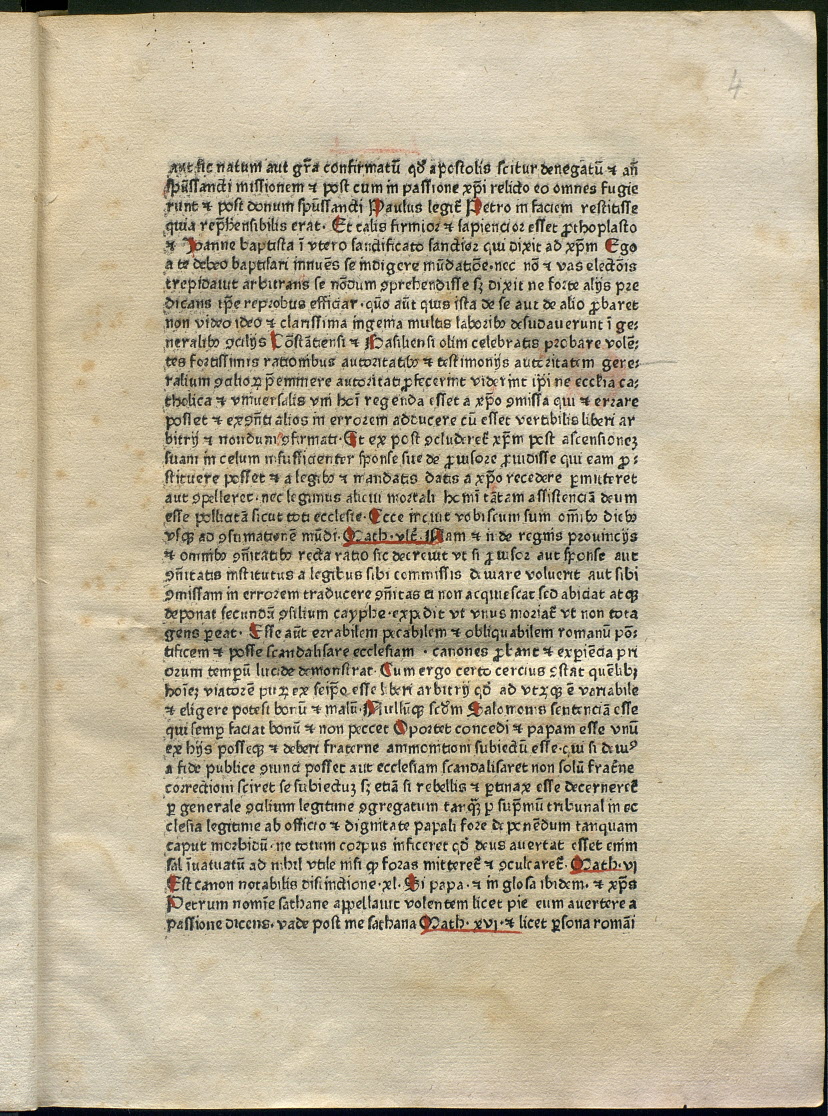 4
aut sic natum aut gr̃a confirmatū qď apostolis scitur denegatū ⁊ añ
spūssancti missionem ⁊ post cum in passione xp̄i relicto eo omnes fugie
runt ⁊ post donum spūssancti Paulus legit̄ Petro in faciem restitisse
quia rep̄hensibilis erat· Et talis firmior ⁊ sapiencior esset ꝓthoplasto
⁊ Joanne baptista ī vtero sanctificato sanctior qui dixit ad xp̄m Ego
a te debeo baptisari innuēs se indigere mūdatiōe·nec nō ⁊ vas electōis
trepidauit arbitrans se nōdum ꝯprehendisse sꝫ dixit ne forte alijs pre
dicans ip̄e reprobus efficiar·quō aūt quis ista de se aut de alio ꝓbaret
non video ideo ⁊ clarissima ingenia multis laboribꝰ desudauerunt ī ge⸗
neralibꝰ ꝯcilijs Cōstātiensi ⁊ Basiliensi olim celebratis probare volē⸗
tes fortissimis rationibus autoritatibꝰ ⁊ testimonijs autoritatem gene⸗
ralium ꝯcilioꝝ p̄emmere autoritati ꝓfecerint viderint ip̄i ne ecclesia ca⸗
tholica ⁊ vniuersalis vni hoī regenda esset a xp̄o ꝯmissa qui ⁊ errare
posset ⁊ exꝯñti alios in errorem adducere cū esset vertibilis liberi ar
bitrij ⁊ nondum ꝯfirmati·Et ex post ꝯcluderet̄ xp̄m post ascensionez
suam in celum insufficienter sponse sue de ꝓuisore ꝓuidisse qui eam ꝓ⸗
stituere posset ⁊ a legibꝰ ⁊ mandatis datis a xp̄o recedere ꝑmitteret
aut ꝯpelleret·nec legimus alicui mortali homini tātam assistenciā deum
esse pollicitā sicut toti ecclesie·Ecce inquit vobiscum sum omībꝰ diebꝰ
vsqꝫ ad ꝯsumationē mūdi·Math·vlt̄·Nam ⁊ in de regnis prouincijs
⁊ omnibꝰ ꝯm̄itatibꝰ recta ratio sic decreuit vt si ꝓuisor aut sponse aut
ꝯm̄itatis institutus a legibus sibi commissis deuiare voluerit aut sibi
ꝯmissam in errorem traducere ꝯm̄itas ei non acquiescat sed abiciat atqꝫ
deponat secundū ꝯsilium cayphe·expedit vt vnus moriat̄ vt non tota
gens ꝑeat· Esse aūt errabilem peccabilem ⁊ obliquabilem romanū pō⸗
tificem ⁊ posse scandalisare ecclesiam · canones ꝓbant ⁊ experiēcia pri
orum tempū lucide demonstrat·Cum ergo certo cercius ꝯstat quēlibꝫ
hoīez viatorē puꝝ ex seip̄o esse liberi arbitrij qď ad vtꝝqꝫ ē variabile
⁊ eligere potest bonū ⁊ malū·Nullūqꝫ scďm Salomonis sentenciā esse
qui semꝑ faciat bonū ⁊ non peccet Oportet concedi ⁊ papam esse vnū
ex hijs posseqꝫ ⁊ deberi fraterne ammonitioni subiectū esse·qui si deuiꝰ
a fide publice ꝯuinci posset aut ecclesiam scandalisaret non solū frat̄ne
correctioni sciret se subiectuz sꝫ etiā si rebellis ⁊ ꝑtinax esse decerneret̄
ꝑ generale ꝯcilium legitime ꝯgregatum tanqꝫ̄ ꝑ sup̄mū tribunal in ec
clesia legitime ab officio ⁊ dignitate papali fore deponēdum tanquam
caput morbidū·ne totum corpus inficeret qď deus auertat esset enim
sal īuatuatū ad nihil vtile nisi ꝙ foras mitteret̄ ⁊ ꝯculcaret̄·Math·vj
Est canon notabilis distinctione·xl·Si papa·⁊ in glosa ibidem·⁊ xp̄s
Petrum nomīe sathane appellauit volentem licet pie eum auertere a
passione dicens·vade post me sathana Math·xvj·⁊ licet ꝑsona romāi